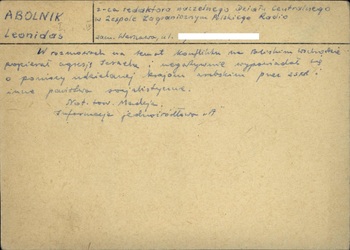 ABOLNIK
Leonidas
z-ca redaktora naczelnego Działu Centralnego
w Zespole Zagranicznym Polskiego Radia
zam. Warszawa, ul.
W rozmowach na temat konfliktu na Bliskim Wschodzie
popierał agresję Izraela i negatywnie wypowiadał się
o pomocy udzielanej krajom arabskim przez ZSRR i
inne państwa socjalistyczne.
Nat. tow. Madeja.
Informacja jednoźródłowa